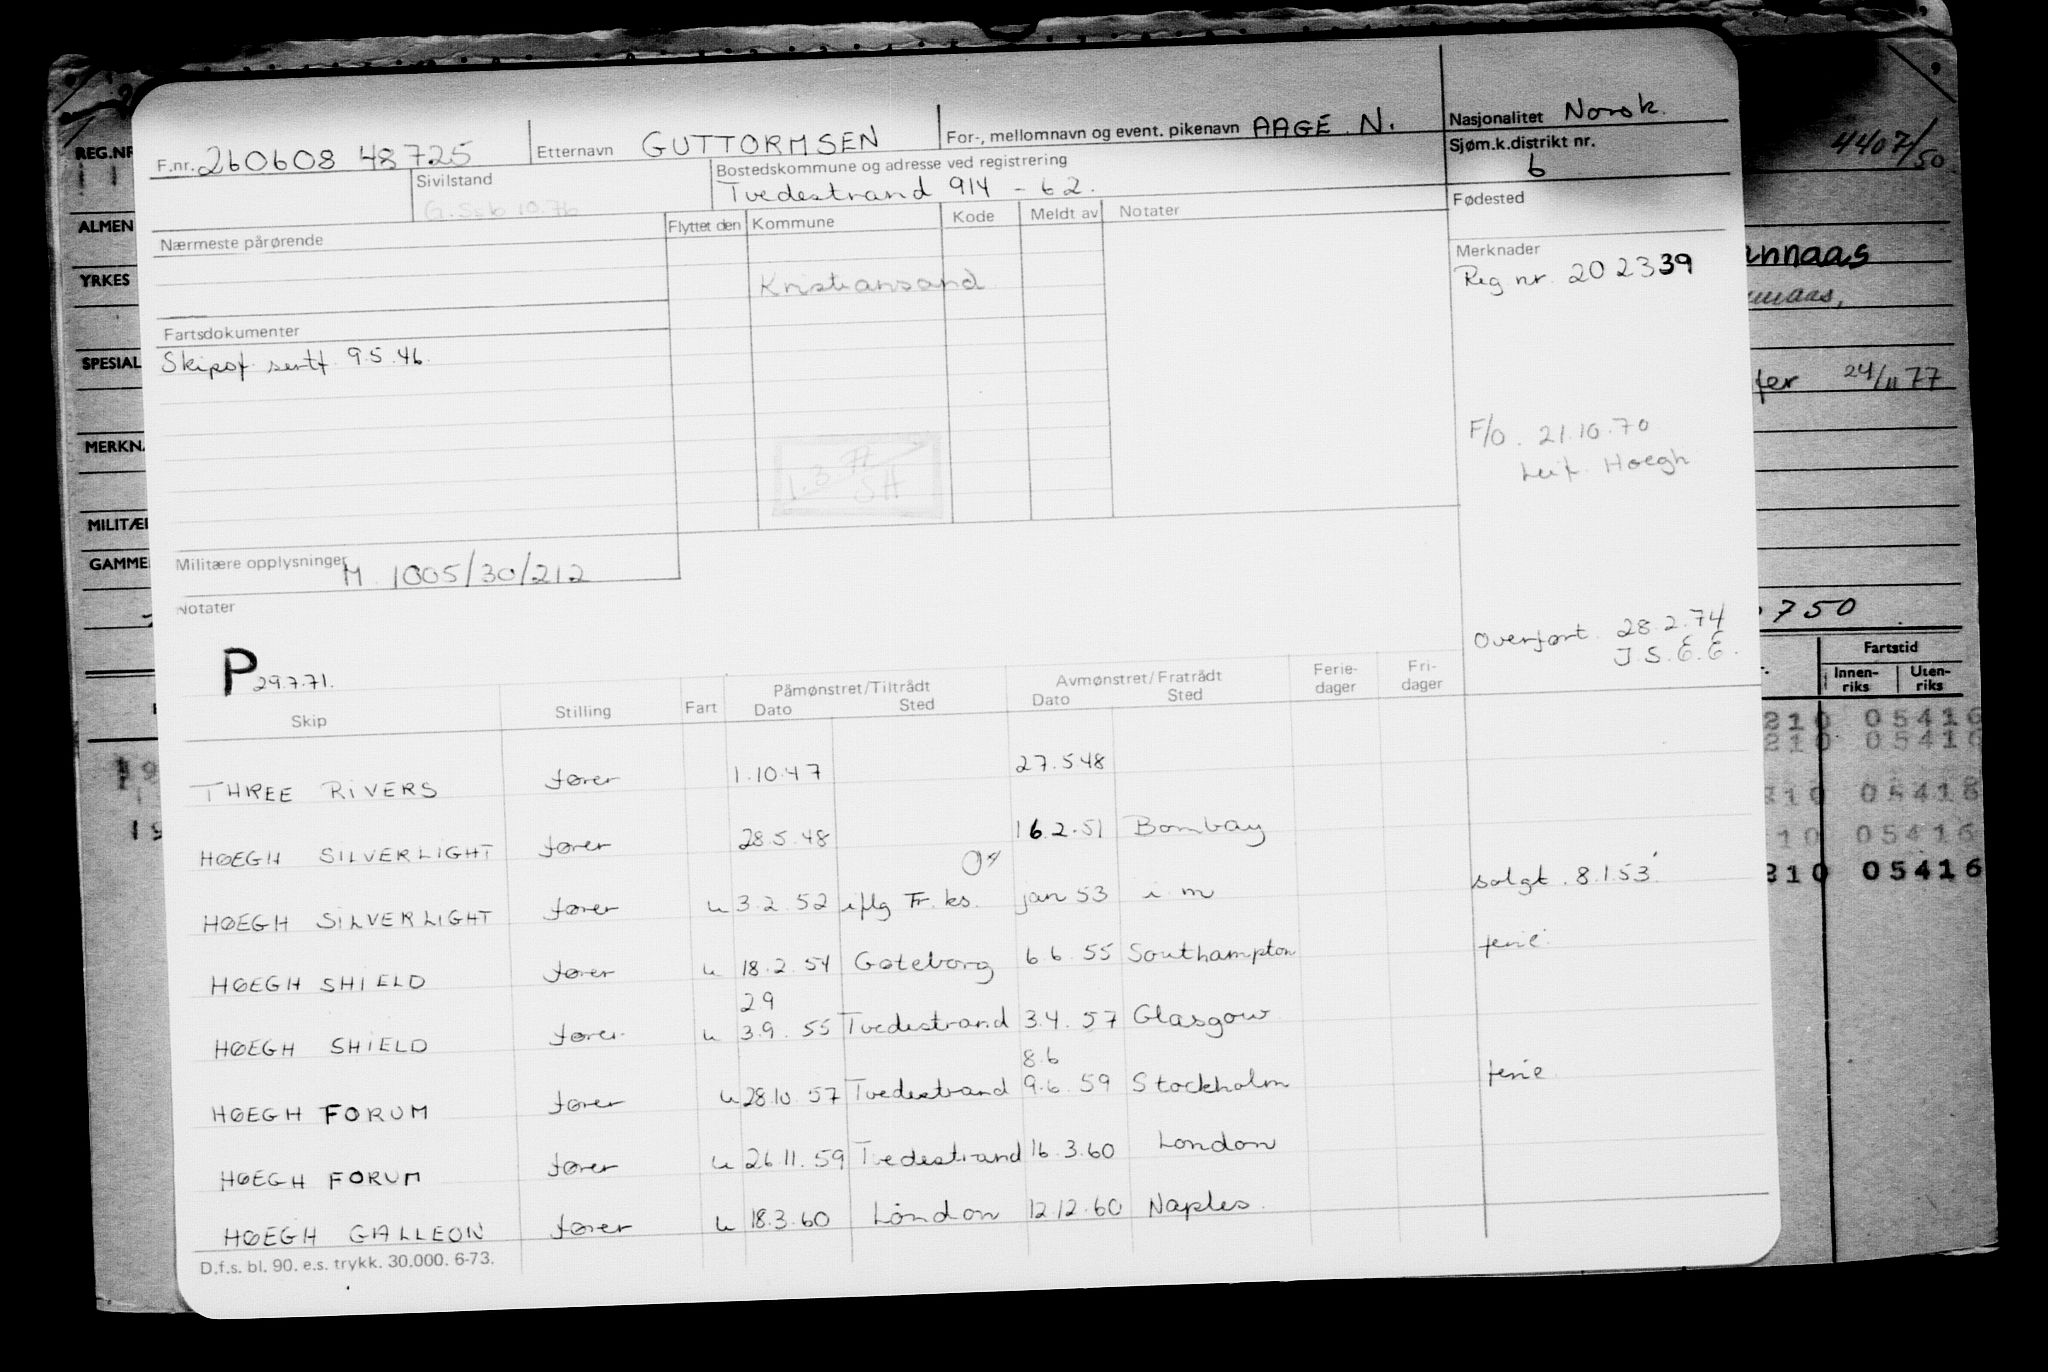 F.nr. 260608 48725 Etternavn GUTTORMSEN For-, mellomnavn og event. pikenavn AAGE N. Nasjonalitet Norsk.
Sivilstand Bostedskommune og adresse ved registrering Sjøm.k.distrikt nr.
Tvedestrand 914 - 62. 6
Nærmeste pårørende Flyttet den Kommune Kode Meldt av Notater Fødested
Merknader
Kristiansand Reg nr. 202339
Fartsdokumenter
Skipsf sertf. 9.5.46.
F/O. 21.10.70
Leif. Hoegh
1.3.72
SH
Militære opplysninger M. 1005/30/212
Notater
Overført. 28.2.74
J.S.E.E.
P 29.7.71.
Påmønstret/Tiltrådt Avmønstret/Fratrådt Ferie- Fri-
Skip Stilling Fart Dato Sted Dato Sted dager dager
THREE RIVERS fører 1.10.47 27.5.48
HØEGH SILVERLIGHT fører 28.5.48 16.2.51 Bombay
HØEGH SILVERLIGHT fører u 3.2.52 iflg Fr. ks. jan 53 i m solgt. 8.1.53.
HØEGH SHIELD fører u 18.2.54 Gøteborg 6.6.55 Southampton ferie.
29
HØEGH SHIELD fører u 3.9.55 Tvedestrand 3.4.57 Glasgow
8.6
HØEGH FORUM fører u 28.10.57 Tvedestrand 9.6.59 Stockholm ferie.
HØEGH FORUM fører u 26.11.59 Tvedestrand 16.3.60 London
HØEGH GALLEON fører u 18.3.60 London 12.12.60 Naples.
D.f.s. bl. 90. e.s. trykk. 30.000. 6-73.
REG.NR
ALMEN
YRKES
SPESIAL
MERKN
MILITÆ
GAMME
4407/50
annaas
24/11 77
750
Fartstid
Innen-riks Uten-riks
210 05416
210 05416
210 05418
210 05416
210 05416